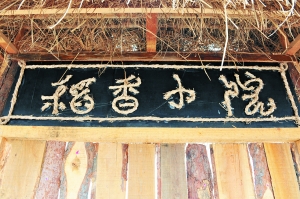 稻香小院